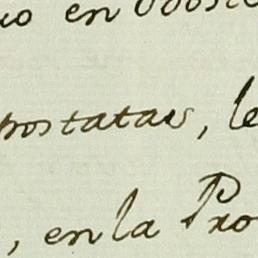 en
postatas, le
, en la Pro